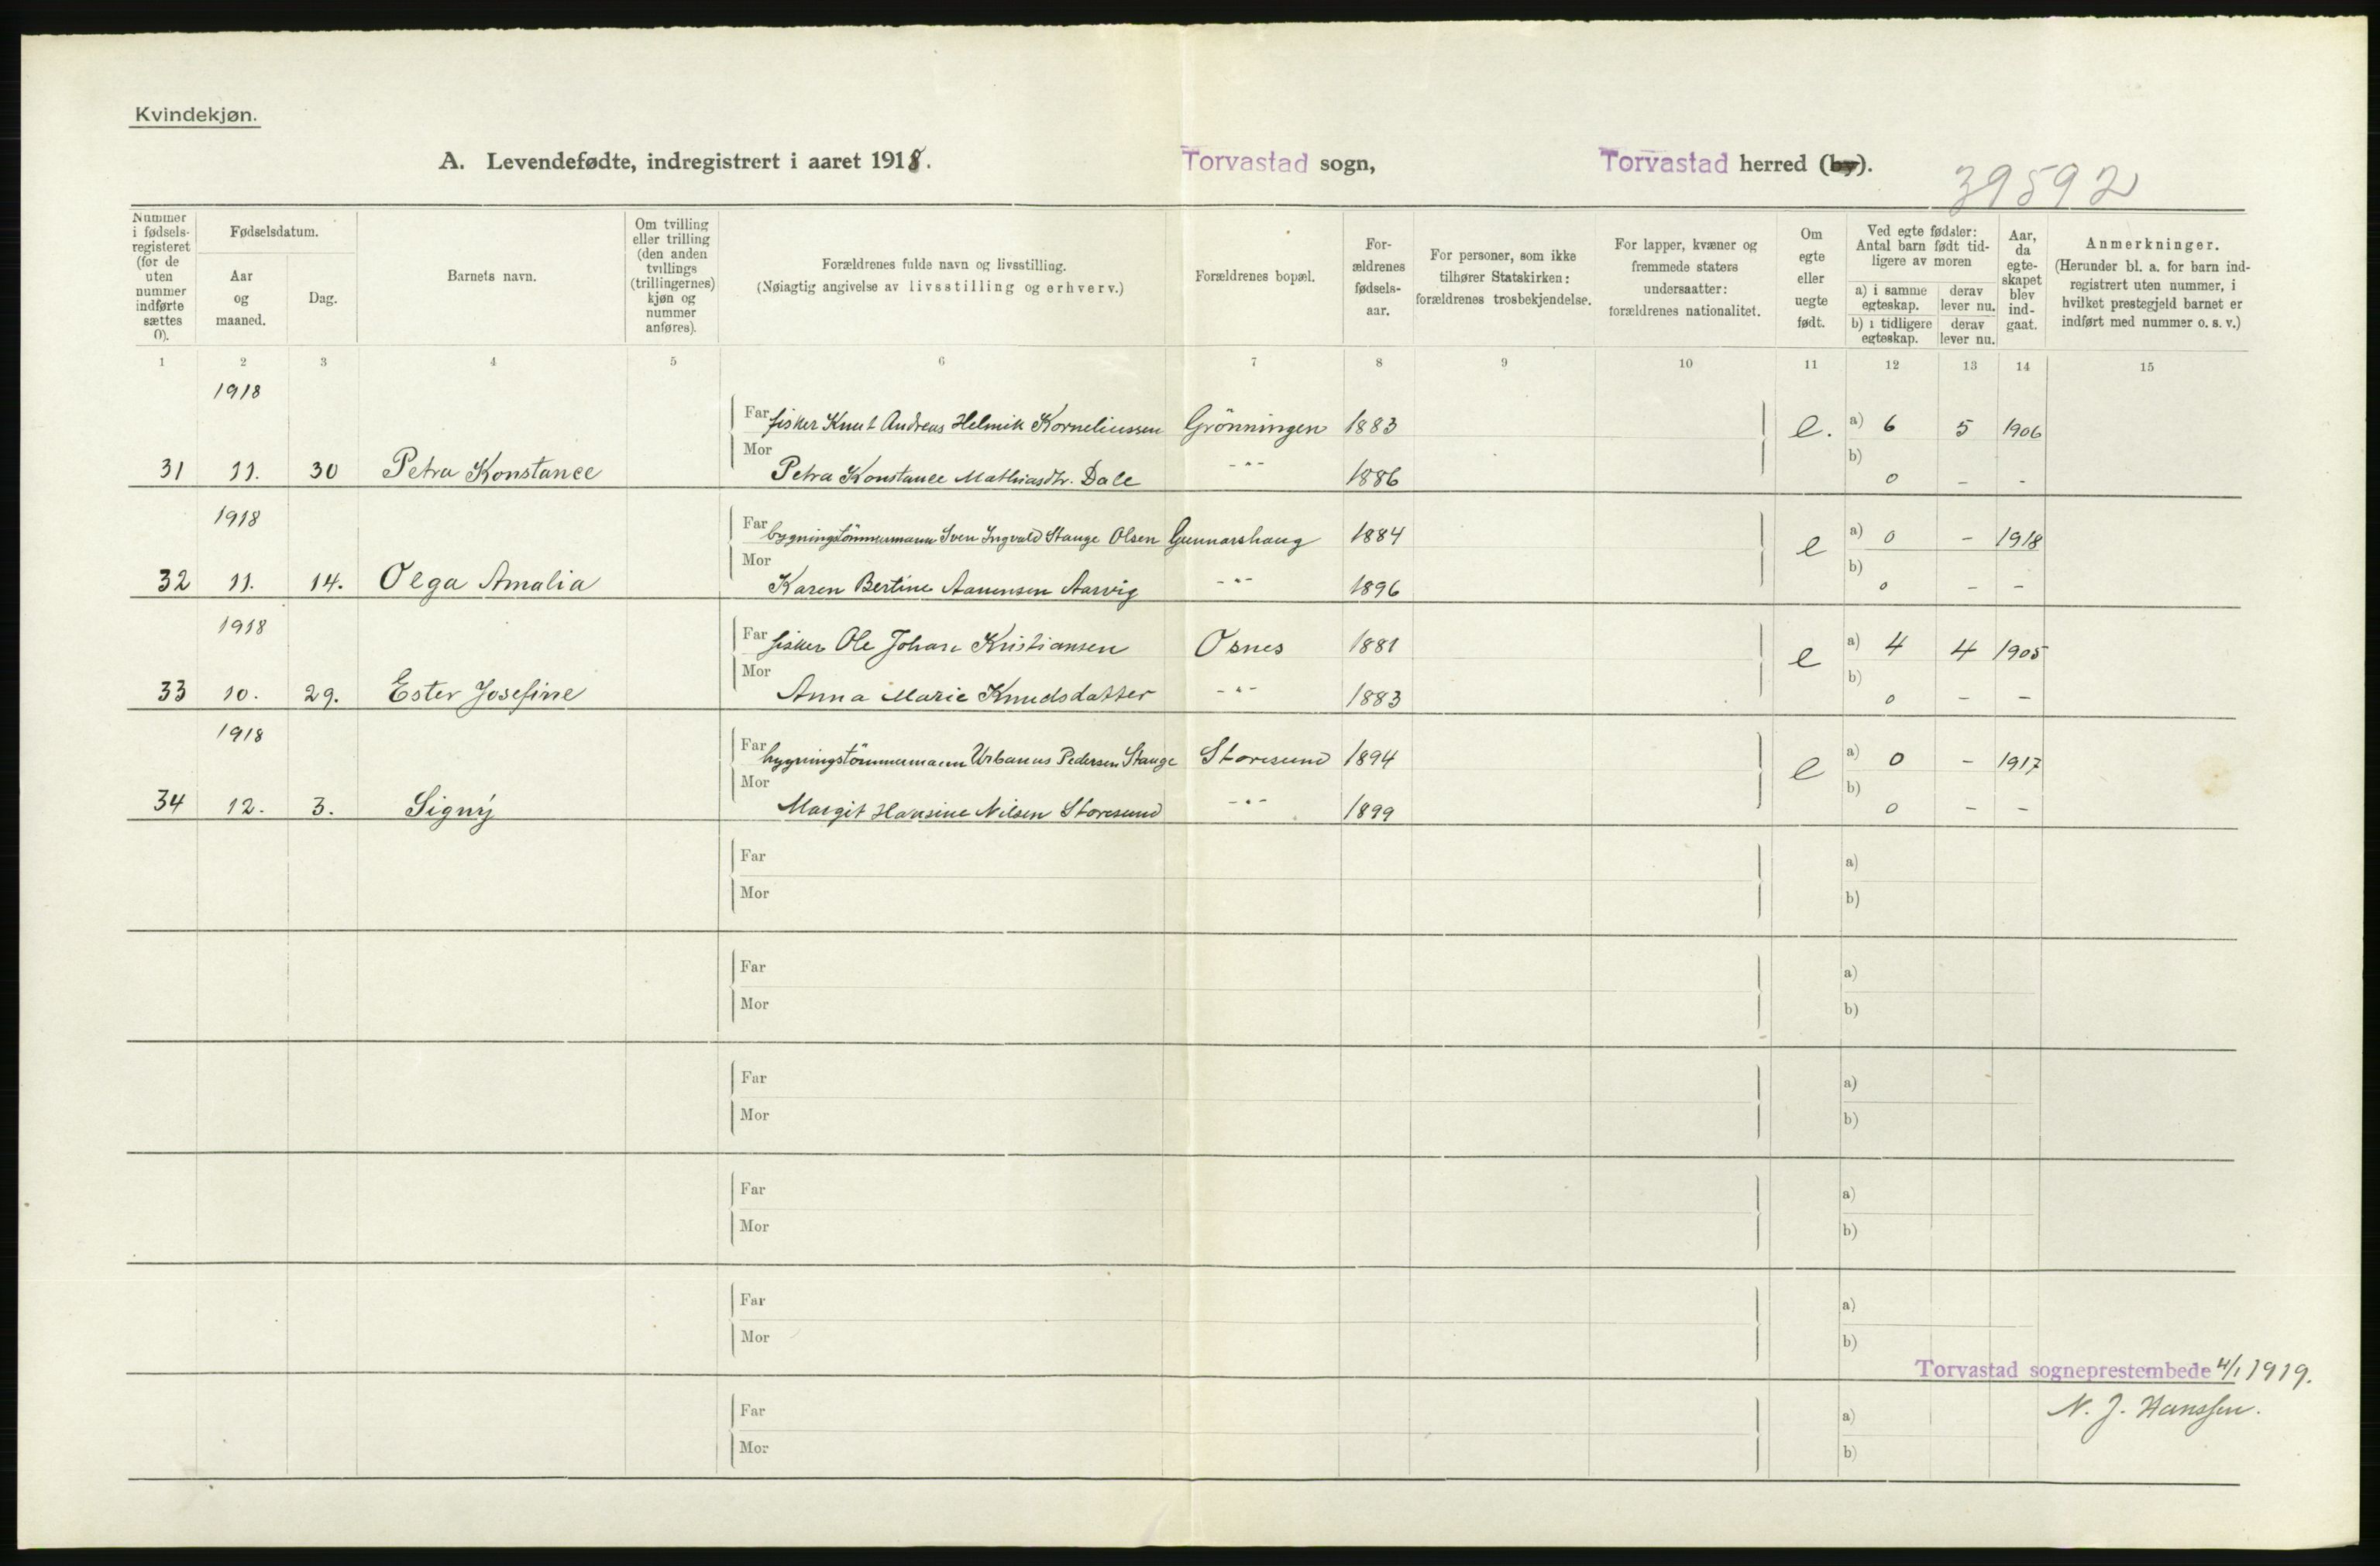 Kvindekjøn.
A. Levendefødte, indregistrert i aaret 1918.
Torvastad sogn,
Torvastad herred (by).
39592
Nummer i fødsels-registeret (for de uten nummer indførte sættes 0).
Fødselsdatum.
Aar og maaned.
Dag.
Barnets navn.
Om tvilling eller trilling (den anden tvillings (trillingernes) kjøn og nummer anføres).
Forældrenes fulde navn og livsstilling.
(Nøiagtig angivelse av livsstilling og erhverv.)
Forældrenes bopæl.
For-ældrenes fødsels-aar.
For personer, som ikke tilhører Statskirken: forældrenes trosbekjendelse.
For lapper, kvæner og fremmede staters undersaatter: forældrenes nationalitet.
Om egte eller uegte født.
Ved egte fødsler: Antal barn født tid-ligere av moren
a) i samme egteskap.
derav lever nu.
b) i tidligere egteskap.
derav lever nu.
Aar, da egte-skapet blev ind-gaat.
Anmerkninger.
(Herunder bl. a. for barn ind-registrert uten nummer, i hvilket prestegjeld barnet er indført med nummer o. s. v.)
1 2 3 4 5 6 7 8 9 10 11 12 13 14 15
1918
Far fisker Knut Andreas Helmik Korneliussen Grönningen 1883 e. a) 6 5 1906
31 11. 30 Petra Konstance Mor Petra Konstance Mathiasdtr. Dale -"- 1886 b) 0 - -
1918
Far bygningstömmermann Sven Ingvald Stange Olsen Gunnarshaug 1884 e a) 0 - 1918
32 11. 14. Olga Amalia Mor Karen Bertine Aanensen Aarvig -"- 1896 b) 0 - -
1918
Far fisker Ole Johan Kristiansen Osnes 1881 e a) 4 4 1905
33 10. 29. Ester Josefine Mor Anna Marie Knudsdatter -"- 1883 b) 0 - -
1918
Far bygningstömmermann Urbanus Pedersen Stange Storesund 1894 e a) 0 - 1917
34 12. 3. Signy Mor Margit Hansine Nilsen Storesund -"- 1899 b) 0 - -
Far a)
Mor b)
Far a)
Mor b)
Far a)
Mor b)
Far a)
Mor b)
Far a)
Mor b)
Torvastad sogneprestembede 4/1 1919.
Far a) N. J. Hanssen.
Mor b)